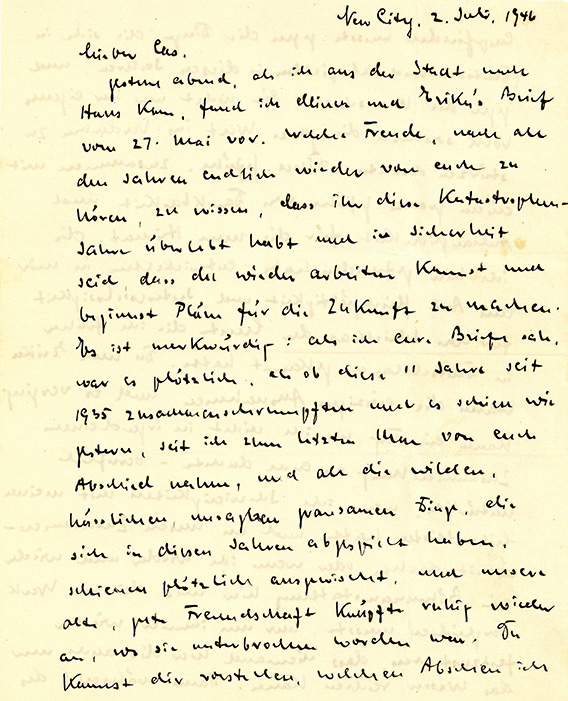 New City, 2. Juli, 1946
Lieber Cas.
gestern abend, als ich aus der Stadt nach
Haus kam, fand ich deinen und Erika's Brief
vom 27. Mai vor. welche Freude, nach all
den Jahren endlich wieder von euch zu
hören, zu wissen, dass ihr diese Katastrophen-
Jahre überlebt habt und in Sicherheit
seid, dass du wieder arbeiten kannst und
beginnst Pläne für die Zukunft zu machen.
Es ist merkwürdig: als ich eure Briefe sah,
war es plötzlich, als ob diese 11 Jahre seit
1935 zusammenschrumpften und es schien wie
gestern, seit ich zum letzten Mal von euch
Abschied nahm, und all die wilden,
hässlichen, grausamen Dinge, die
sich in diesen Jahren abgespielt haben,
schienen plötzlich ausgewischt, und unsere
alte, gute Freundschaft knüpfte ruhig wieder
an, wo sie unterbrochen worden war. Du
kannst dir vorstellen, welchen Abscheu ich